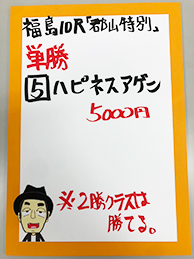 福島10R「郡山特別」
単勝
5ハピネスアゲン
5000円
※2勝クラスは
勝てる。